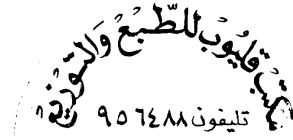 مكتب قليوب للطبع والتوزيع
تليفون ٩٥٦٤٨٨